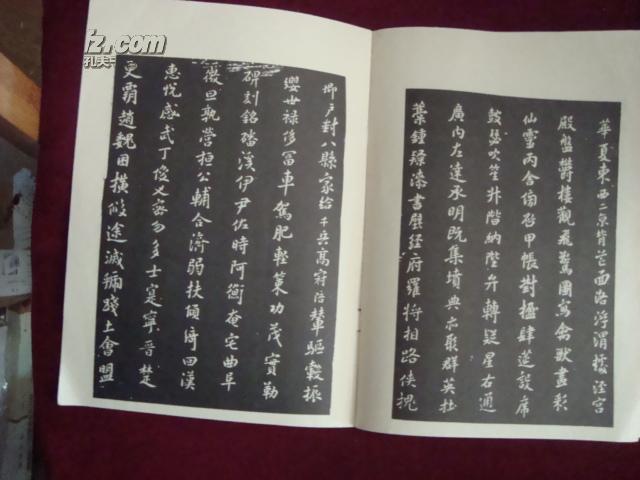 华夏東西二京背芒面洛浮渭據涇宫
殿盤欝樓觀飛驚圖寫禽獸畫彩
仙靈丙舍傍啓甲帳對楹肆筵設席
鼓瑟吹笙升階納陛弁轉疑星右通
廣内左達承明既集墳典亦聚群英杜
藁鍾隸漆書壁經府羅將相路俠槐
卿户封八縣家給千兵高冠陪輦驅轂振
纓世禄侈富車駕肥輕策功茂實勒
碑刻銘磻溪伊尹佐時阿衡奄宅曲阜
微旦孰營桓公輔合濟弱扶傾綺回漢
惠悦感武丁俊乂密勿多士寔寧晋楚
更霸趙魏困横假途滅虢踐土會盟
z.com